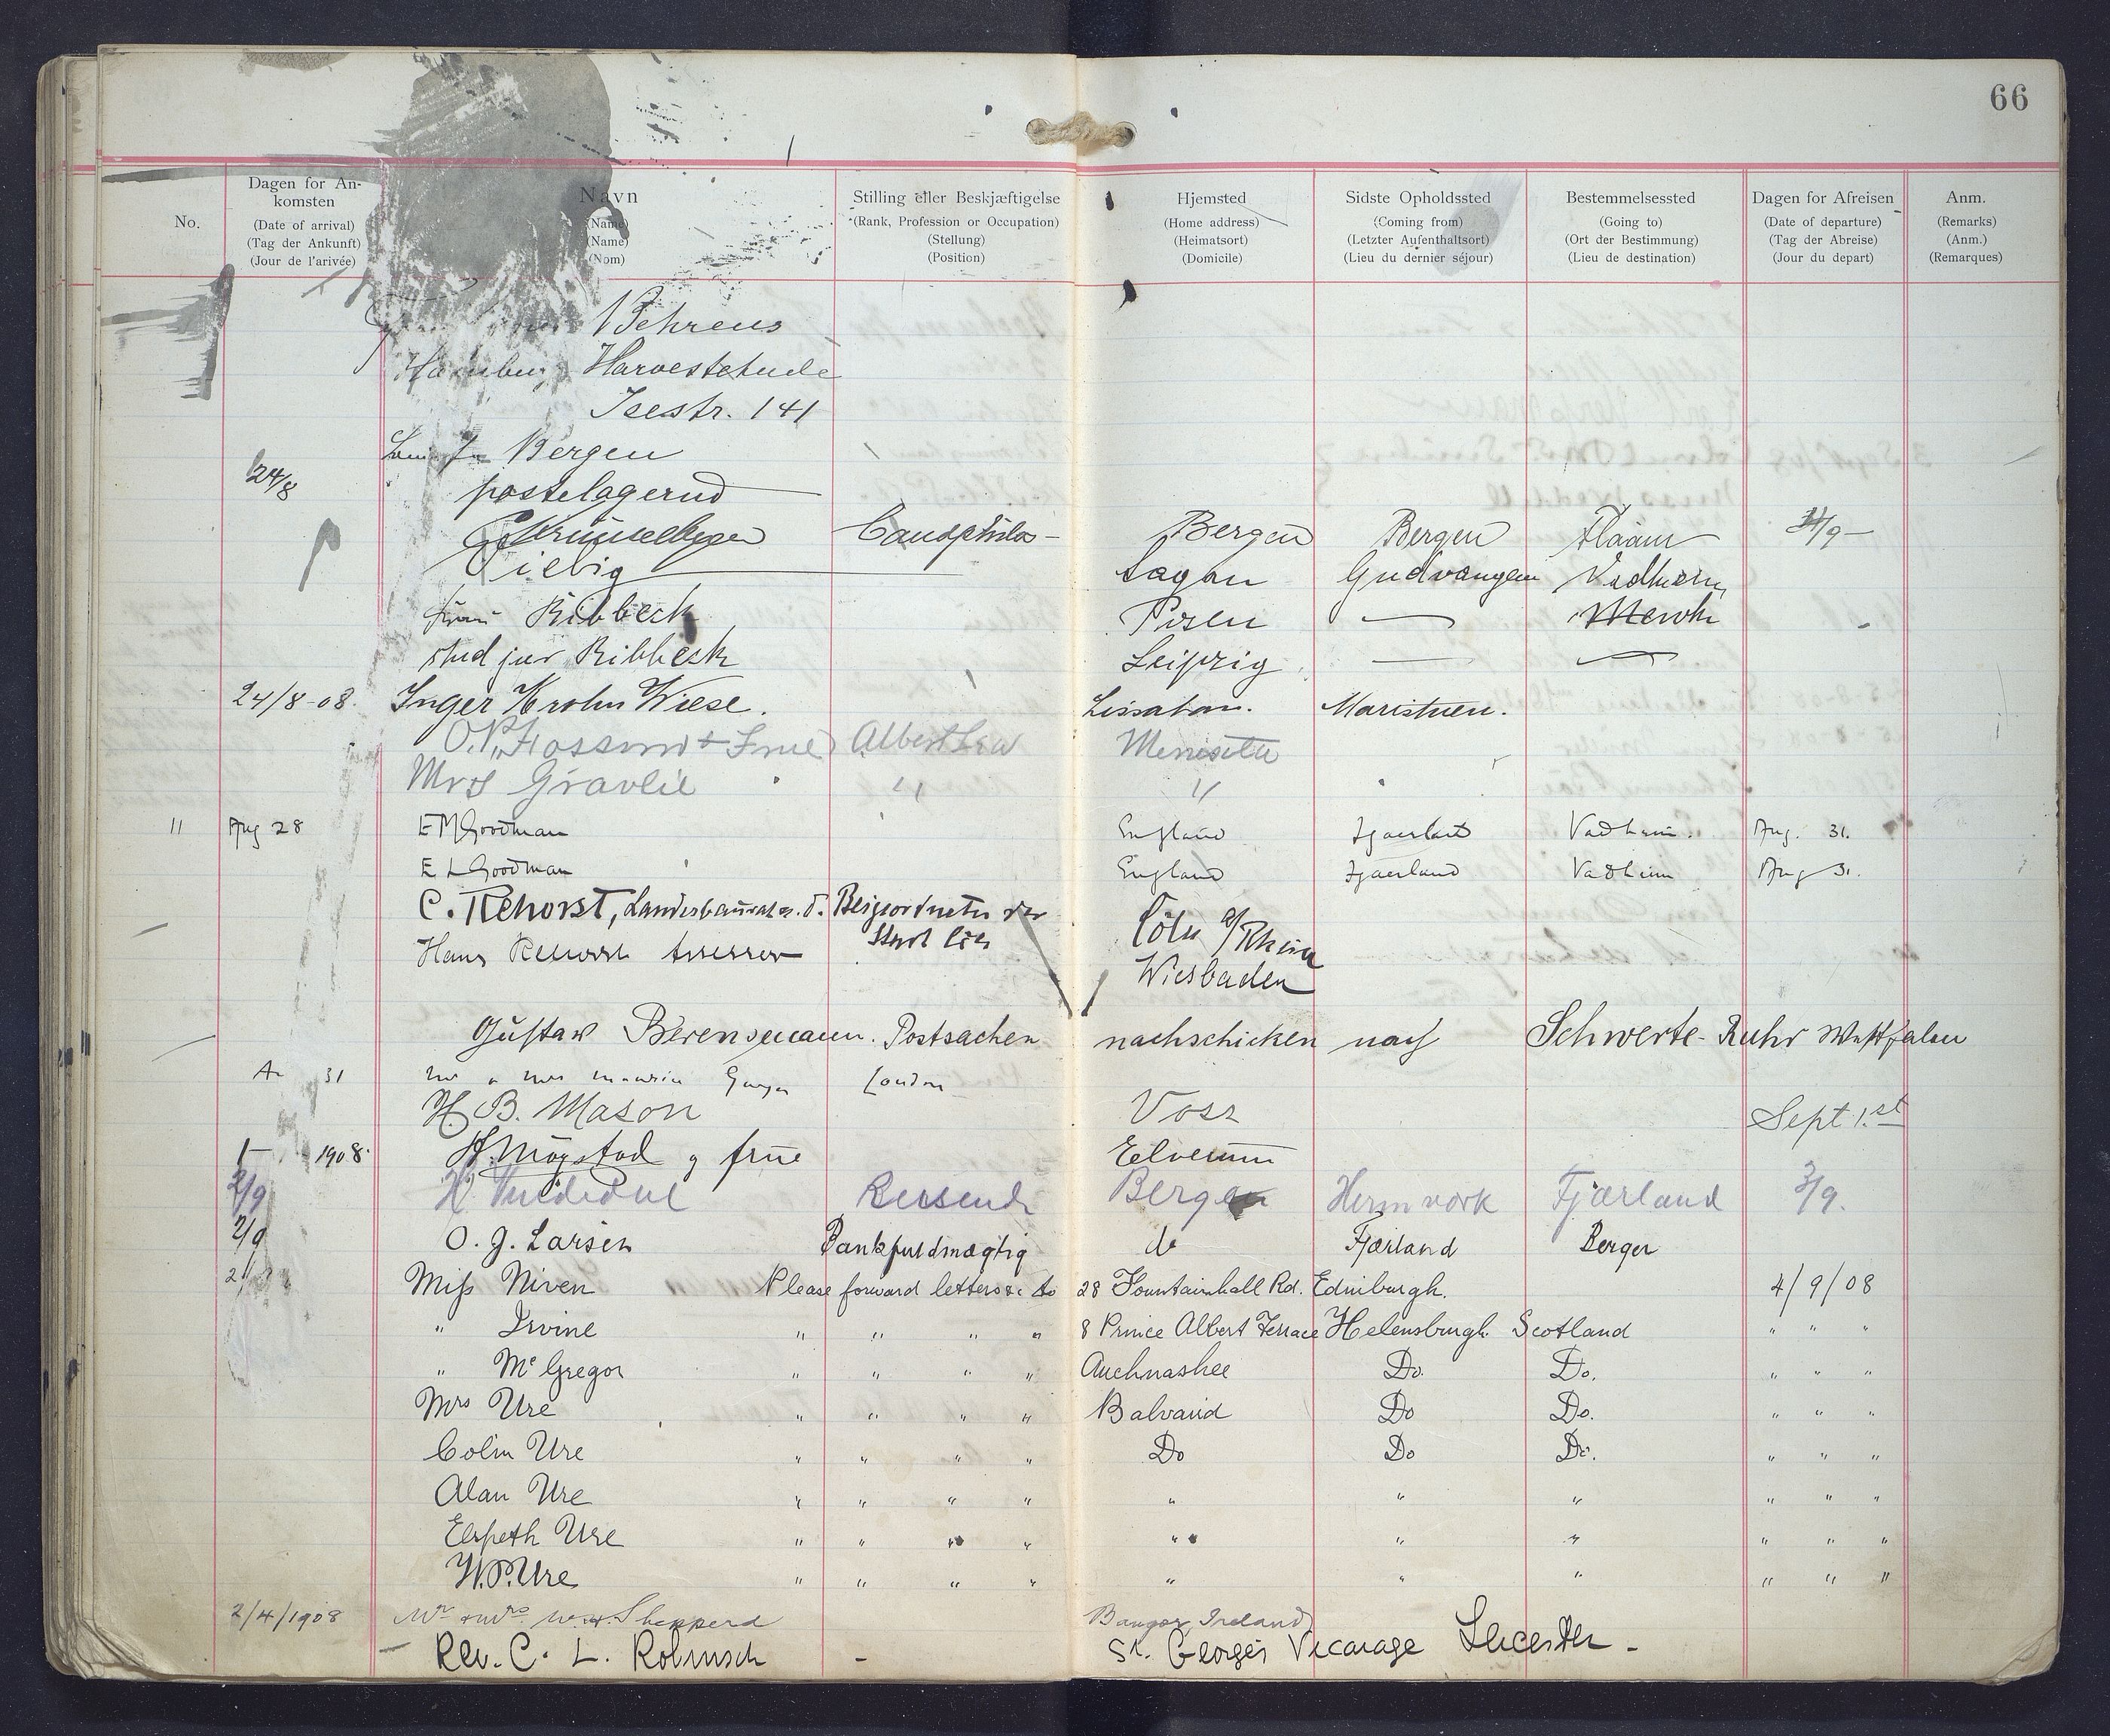 66
No.
Dagen for An-
komsten
(Date of arrival)
(Tag der Ankunft)
(Jour de l'arivée)
Navn
(Name)
(Name)
(Nom)
Stilling eller Beskjæftigelse
(Rank, Profession or Occupation)
(Stellung)
(Position)
Hjemsted
(Home address)
(Heimatsort)
(Domicile)
Sidste Opholdssted
(Coming from)
(Letzter Aufenthaltsort)
(Lieu du dernier séjour)
Bestemmelsessted
(Going to)
(Ort der Bestimmung)
(Lieu de destination)
Dagen for Afreisen
(Date of departure)
(Tag der Abreise)
(Jour du depart)
Anm.
(Remarks)
(Anm.)
(Remarques)
Behrens
Hamburg Harvestehude
Isestr. 141
Bergen
24/8 postelagernd
Bergen Bergen Flaam /9-
Liebig Sagan Gudvangen Vadheim
Frau Ribbeck Posen — Merok
stud jur Ribbeck Leipzig — —
24/8-08. Inger Krohn Wiese. Maristuen.
O.N. Fossum + Frue Albert Lea
Mrs Gravlie " "
11 Aug 28 E M Goodman England Fjaerland Vadheim. Aug. 31.
E L Goodman England Fjaerland Vadheim Aug 31.
C. Rehorst, Landesbaurat a. D. Beigeordneter der
Stadt Cöln Cöln a/Rhein
Hans Rehorst Assessor Wiesbaden
Gustav Berensmann. Postsachen nachschicken nach Schwerte-Ruhr Westfalen
31 Mr & Mrs London
H. B. Mason Voss Sept 1.st
1- 1908. H. Mogstad g frue Elverum
2/9 H Reisende Bergen Fjærland 3/9.
2/9 O. J. Larsen Bankfuldmægtig do Fjærland Bergen
Miss Niven Please forward letters &c to 28 Fountainhall Rd. Edinburgh. 4/9/08
" Irvine " " " " 8 Prince Albert Terrace Helensburgh Scotland " " "
" McGregor " " " " Auchnashee Do. Do. " " "
Mrs Ure " " " " Balvaird Do Do. " " "
Colin Ure " " " " Do Do Do. " " "
Alan Ure " " " " " " " " " "
Elspeth Ure " " " " " " " " " "
W.P. Ure " " " " " " " " " "
2/4/1908 Mr & Mrs. W. H. Shepperd Bangor Ireland
Rev. C. L. Robinson - St. George's Vicarage Leicester -